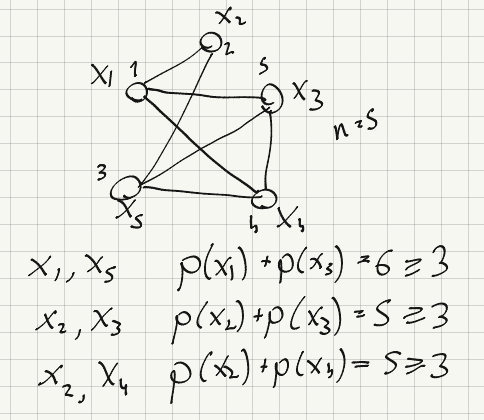 X₂
2
X₁ 1
5 X₃
n=5
3
X₅
4 X₄
X₁, X₅ p(x₁)+p(x₃)=6≥3
X₂, X₃ p(x₂)+p(x₃)=5≥3
X₂, X₄ p(x₂)+p(x₄)=5≥3